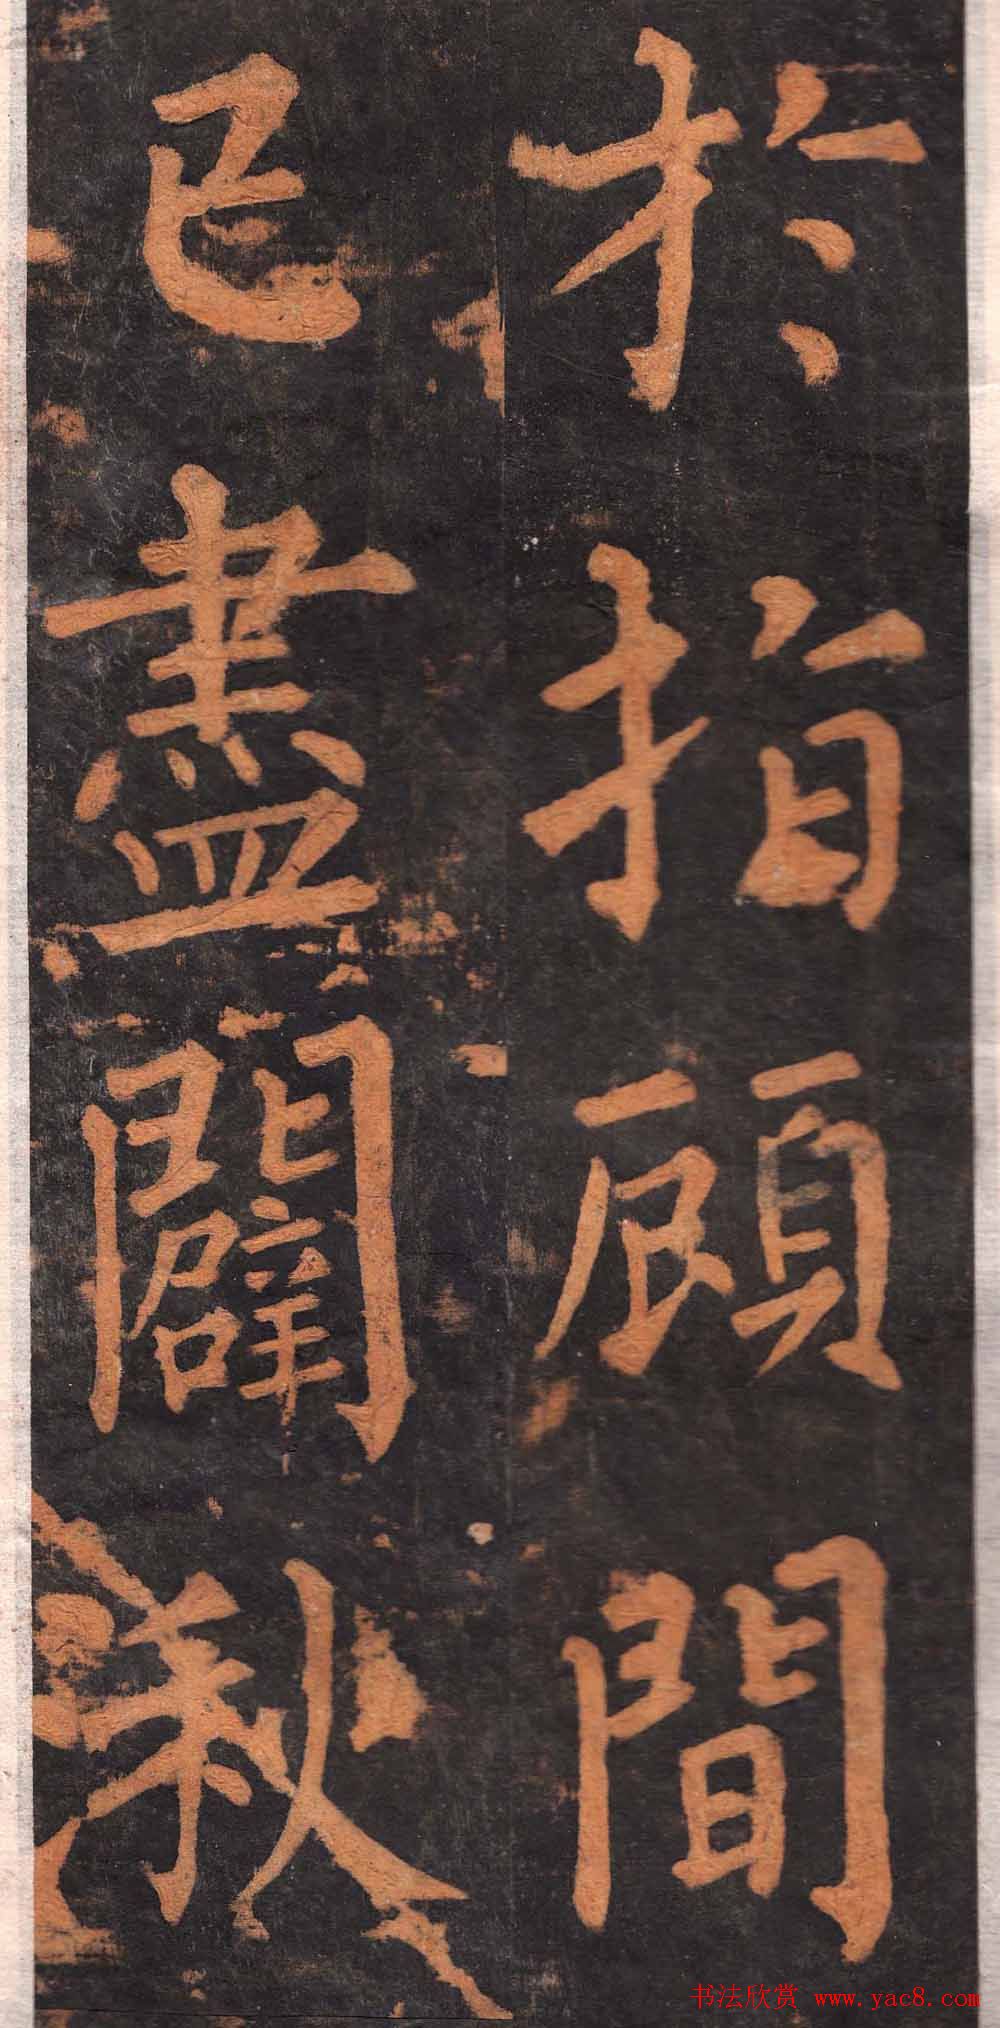 於指顧間
已盡闢
书法欣赏 www.yac8.com